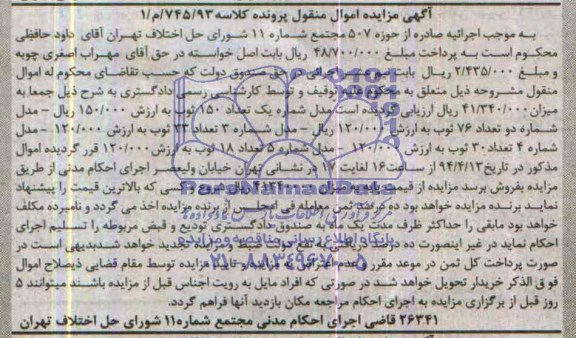 آگهی مزایده اموال منقول پرونده کلاسه ۷۴۵/۹۳/م/۱
به موجب اجرائیه صادره از حوزه ۵۰۷ مجتمع شماره ۱۱ شورای حل اختلاف تهران آقای داود حافظی
محکوم است به پرداخت مبلغ ۴۸/۷۰۰/۰۰۰ ریال بابت اصل خواسته در حق آقای مهراب اصغری چوبه
و مبلغ ۲/۴۳۵/۰۰۰ ریال بابت حق صندوق دولت که حسب تقاضای محکوم له اموال
منقول مشروحه ذیل متعلق به محکوم علیه توقیف و توسط کارشناسی رسمی دادگستری به شرح ذیل جمعا به
میزان ۴۱/۳۴۰/۰۰۰ ریال ارزیابی گردیده است مدل شماره یک تعداد ۱۵۰ ثوب به ارزش ۱۵۰/۰۰۰ ریال – مدل
شماره دو تعداد ۷۶ ثوب به ارزش ۱۲۰/۰۰۰ ریال – مدل شماره ۳ تعداد ۲۳ ثوب به ارزش ۱۲۰/۰۰۰ – مدل
شماره ۴ تعداد ۳۰ ثوب به ارزش ۱۲۰/۰۰۰ – مدل شماره ۵ تعداد ۱۸ ثوب به ارزش ۱۲۰/۰۰۰ قرر گردیده اموال
مذکور در تاریخ ۹۴/۴/۱۳ از ساعت ۱۶ لغایت ۱۷ در نشانی تهران خیابان ولیعصر اجرای احکام مدنی از طریق
مزایده بفروش برسد مزایده از قیمت کسی که بالاترین قیمت را پیشنهاد
نماید برنده مزایده خواهد بود ده درصد ثمن معامله فی المجلس از برنده مزایده اخذ می گردد و نامبرده مکلف
خواهد بود مابقی را حداکثر ظرف مدت یک ماه به صندوق دادگستری تودیع و قبض مربوطه را تسلیم اجرای
احکام نماید در غیر اینصورت ده درصد به نفع دولت تجدید خواهد شد بدیهی است در
صورت پرداخت کل ثمن در موعد مقرر و مزایده توسط مقام قضایی ذیصلاح اموال
فوق الذکر خریدار تحویل خواهد شد در صورتی که افراد مایل به رویت اجناس قبل از مزایده باشند میتوانند ۵
روز قبل از برگزاری مزایده به اجرای احکام مراجعه مکان بازدید آنها فراهم گردد.
۲۶۳۴۱ قاضی اجرای احکام مدنی مجتمع شماره ۱۱ شورای حل اختلاف تهران
ParsNamadData
پایگاه اطلاع رسانی مناقصه و مزایده
۰۲۱-۸۸۳۴۹۶۷۰-۵